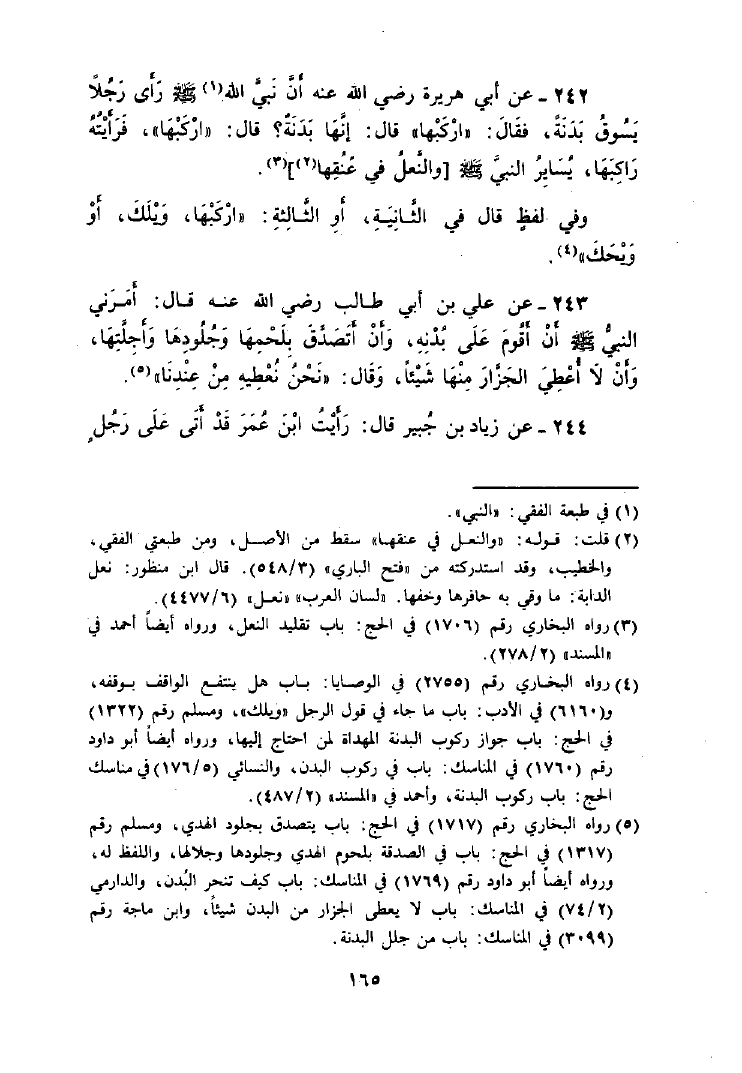 ٢٤٢ ـ عن أبي هريرة رضي الله عنه أَنَّ نَبيَّ الله(١) ﷺ رَأَى رَجُلاً
يَسُوقُ بَدَنَةً، فقَالَ: «ارْكَبْها» قال: إنَّهَا بَدَنَةٌ؟ قال: «ارْكَبْهَا»، فَرَأَيْتُهُ
رَاكِبَهَا، يُسَايِرُ النبيَّ ﷺ [والنَّعلُ في عُنُقِها(٢)](٣).
وفي لفظٍ قال في الثَّانِيَةِ، أو الثَّالِثةِ: «ارْكَبْهَا، وَيْلَكَ، أَوْ
وَيْحَكَ»(٤).
٢٤٣ ـ عن علي بن أبي طالب رضي الله عنه قال: أَمَرَني
النبيُّ ﷺ أَنْ أَقُومَ عَلَى بُدْنِهِ، وَأَنْ أَتَصَدَّقَ بِلَحْمِهَا وَجُلُودِهَا وَأَجِلَّتِهَا،
وَأَنْ لَا أُعْطِيَ الجَزَّارَ مِنْهَا شَيْئاً، وَقَال: «نَحْنُ نُعْطِيهِ مِنْ عِنْدِنَا»(٥).
٢٤٤ ـ عن زياد بن جُبير قال: رَأَيْتُ ابْنَ عُمَرَ قَدْ أَتَى عَلَى رَجُلٍ
(١) في طبعة الفقي: «النبي».
(٢) قلت: قوله: «والنعل في عنقها» سقط من الأصل، ومن طبعتي الفقي،
والخطيب، وقد استدركته من «فتح الباري» (٥٤٨/٣). قال ابن منظور: نعل
الدابة: ما وقي به حافرها وخفها. «لسان العرب» «نعل» (٤٤٧٧/٦).
(٣) رواه البخاري رقم (١٧٠٦) في الحج: باب تقليد النعل، ورواه أيضاً أحمد في
«المسند» (٢٧٨/٢).
(٤) رواه البخاري رقم (٢٧٥٥) في الوصايا: باب هل ينتفع الواقف بوقفه،
و(٦١٦٠) في الأدب: باب ما جاء في قول الرجل «ويلك»، ومسلم رقم (١٣٢٢)
في الحج: باب جواز ركوب البدنة المهداة لمن احتاج إليها، ورواه أيضاً أبو داود
رقم (١٧٦٠) في المناسك: باب في ركوب البدن، والنسائي (١٧٦/٥) في مناسك
الحج: باب ركوب البدنة، وأحمد في «المسند» (٤٨٧/٢).
(٥) رواه البخاري رقم (١٧١٧) في الحج: باب يتصدق بجلود الهدي، ومسلم رقم
(١٣١٧) في الحج: باب في الصدقة بلحوم الهدي وجلودها وجلالها، واللفظ له،
ورواه أيضاً أبو داود رقم (١٧٦٩) في المناسك: باب كيف تنحر البُدن، والدارمي
(٧٤/٢) في المناسك: باب لا يعطى الجزار من البدن شيئاً، وابن ماجة رقم
(٣٠٩٩) في المناسك: باب من جلل البدنة.
١٦٥